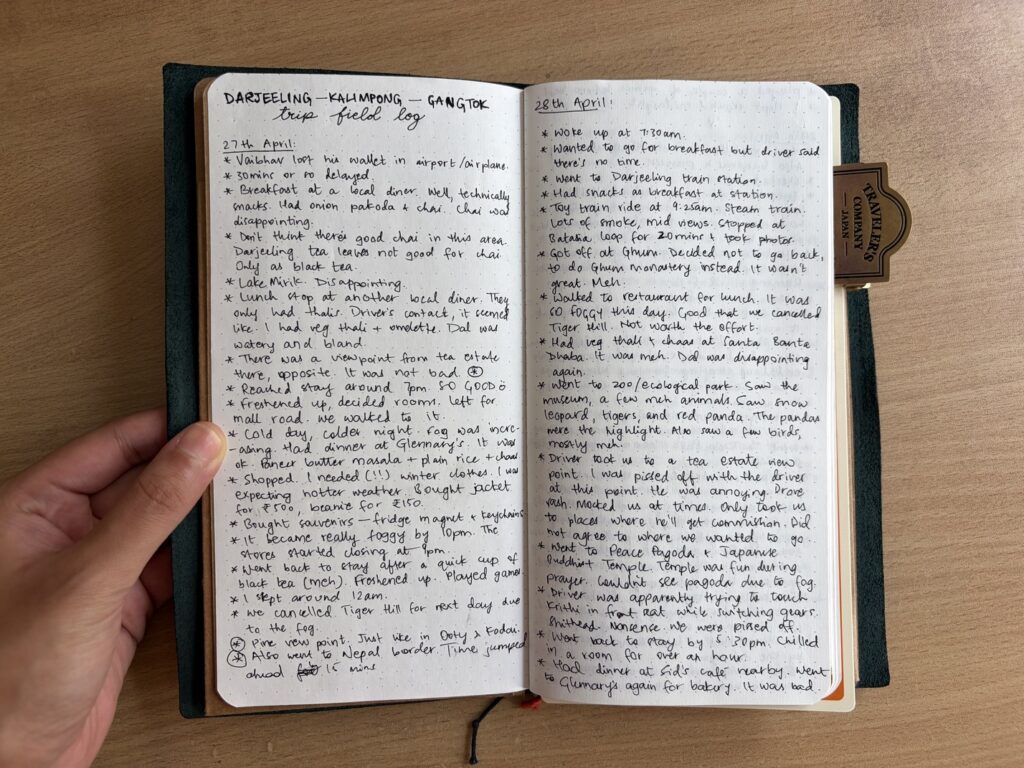 DARJEELING — KALIMPONG — GANGTOK
trip field log
27th April:
* Vaibhav lost his wallet in airport/airplane.
* 30mins or so delayed.
* Breakfast at a local diner. Well, technically
snacks. Had onion pakoda + chai. Chai was
disappointing.
* Don't think there's good chai in this area.
Darjeeling tea leaves not good for chai.
Only as black tea.
* Lake Mirik. Disappointing.
* Lunch stop at another local diner. They
only had thalis. Driver's contact, it seemed
like. I had veg thali + omelette. Dal was
watery and bland.
* There was a viewpoint from tea estate
there, opposite. It was not bad. *
* Reached stay around 7pm. SO GOOD ö
* Freshened up, decided rooms. Left for
mall road. We walked to it.
* Cold day, colder night. Fog was incre-
-asing. Had dinner at Glennary's. It was
ok. Paneer butter masala + plain rice + chaas
* Shopped. I needed (!!) winter clothes. I was
expecting hotter weather. Bought jacket
for ₹500, beanie for ₹150.
* Bought souvenirs — fridge magnet + keychains
* It became really foggy by 10pm. The
stores started closing at 9pm.
* Went back to stay after a quick cup of
black tea (meh). Freshened up. Played games.
* I slept around 12am.
* We cancelled Tiger Hill for next day due
to the fog.
* Pine view point. Just like in Ooty & Kodai.
* Also went to Nepal border. Time jumped
ahead 15 mins
28th April:
* Woke up at 7:30am.
* Wanted to go for breakfast but driver said
there's no time.
* Went to Darjeeling train station.
* Had snacks as breakfast at station.
* Toy train ride at 9:25am. Steam train.
Lots of smoke, mid views. Stopped at
Batasia loop for 20mins + took photos.
* Got off at Ghum. Decided not to go back,
to do Ghum monastery instead. It wasn't
great. Meh.
* Walked to restaurant for lunch. It was
SO FOGGY this day. Good that we cancelled
Tiger Hill. Not worth the effort.
* Had veg thali + chaas at Santa Banta
Dhaba. It was meh. Dal was disappointing
again.
* Went to zoo/ecological park. Saw the
museum, a few meh animals. Saw snow
leopard, tigers, and red panda. The pandas
were the highlight. Also saw a few birds,
mostly meh.
* Driver took us to a tea estate view
point. I was pissed off with the driver
at this point. He was annoying. Drove
rash. Mocked us at times. Only took us
to places where he'll get commission. Did
not agree to where we wanted to go.
* Went to Peace Pagoda & Japanese
Buddhist Temple. Temple was fun during
prayer. Couldn't see pagoda due to fog.
* Driver was apparently trying to touch
Krithi in front seat while switching gears.
Shithead. Nonsense. We were pissed off.
* Went back to stay by 5:30pm. Chilled
in a room for over an hour.
* Had dinner at Sid's café nearby. Went
to Glennary's again for bakery. It was bad.
TRAVELER'S
COMPANY
— JAPAN —